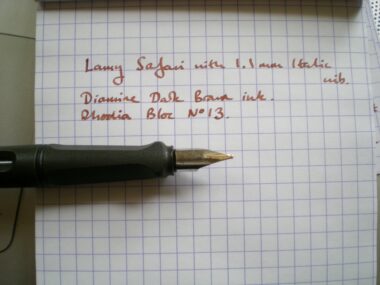 Lamy Safari with 1.1 mm Italic
nib.
Diamine Dark Brown ink.
Rhodia Bloc Nº 13.